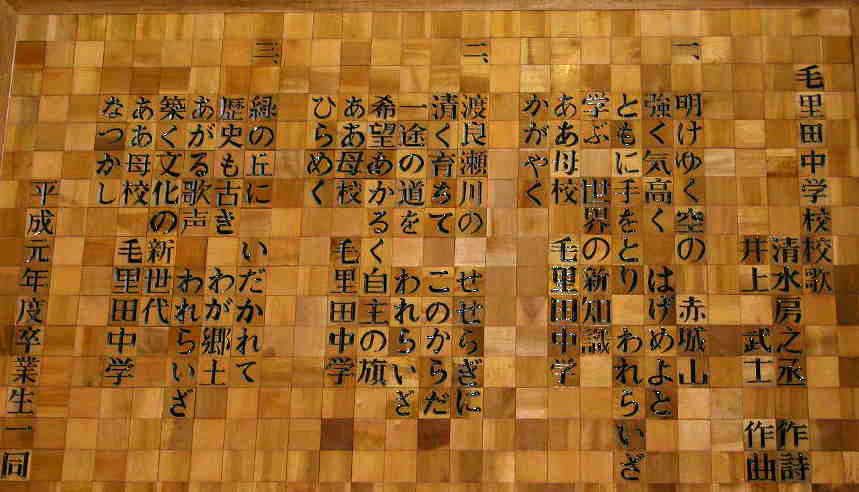 毛里田中学校校歌
清水房之丞 作詩
井上 武士 作曲
一、
明けゆく空の 赤城山
強く気高く はげめよと
ともに手をとり われらいざ
学ぶ 世界の新知識
ああ母校 毛里田中学
かがやく
二、
渡良瀬川の せせらぎに
清く育ちて このからだ
一途の道を われらいざ
希望あかるく自主の旗
ああ母校 毛里田中学
ひらめく
三、
緑の丘に いだかれて
歴史も古き わが郷土
あがる歌声 われらいざ
築く文化の 新世代
ああ母校 毛里田中学
なつかし
平成元年度卒業生一同